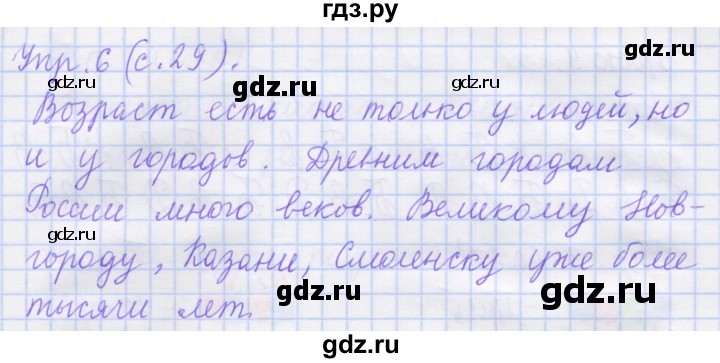 гдз.ру
Упр. 6 (с. 29).
gdz.ru
gdz.ru
Возраст есть не только у людей, но
и у городов. Древним городам
gdz.ru
gdz.ru
России много веков. Великому Нов-
gdz.ru
городу, Казани, Смоленску уже более
gdz.ru
gdz.ru
тысячи лет.